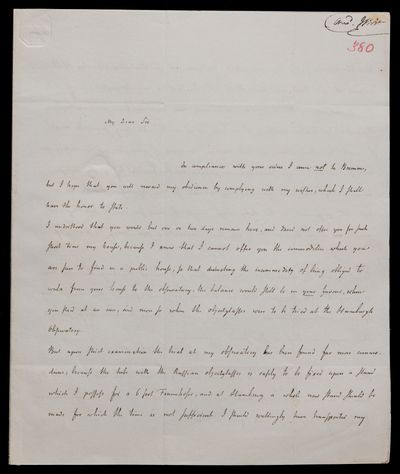 380
My Dear Sir
In compliance with your wishes I came not to Bremen,
but I hope that you will reward my obedience by complying with my wishes, which I shall
have the honor to state.
I understood that you would but one or two days remain here, and dared not offer you for such
short time my house, because I know that I cannot offer you the commodities which you
are sure to find in a public house, so that deducting the incommodity of being obliged to
walk from your house to the observatory the balance would still be in your favour, when
you staid at an inn, and more so when the objectglasses were to be tried at the Hamburgh
Observatory.
But upon strict examination the local at my observatory has been found far more commo-
dious, because the tube with the Russian objectglasses is easily to be fixed upon a stand
which I possess for a 6 foot Fraunhofer, and at Hamburg a whole new stand should be
made for which the time is not sufficient. I should willingly have transported my